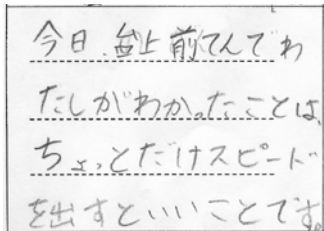 今日、台上前てんでわ
たしがわかったことは、
ちょっとだけスピード
を出すといいことです。